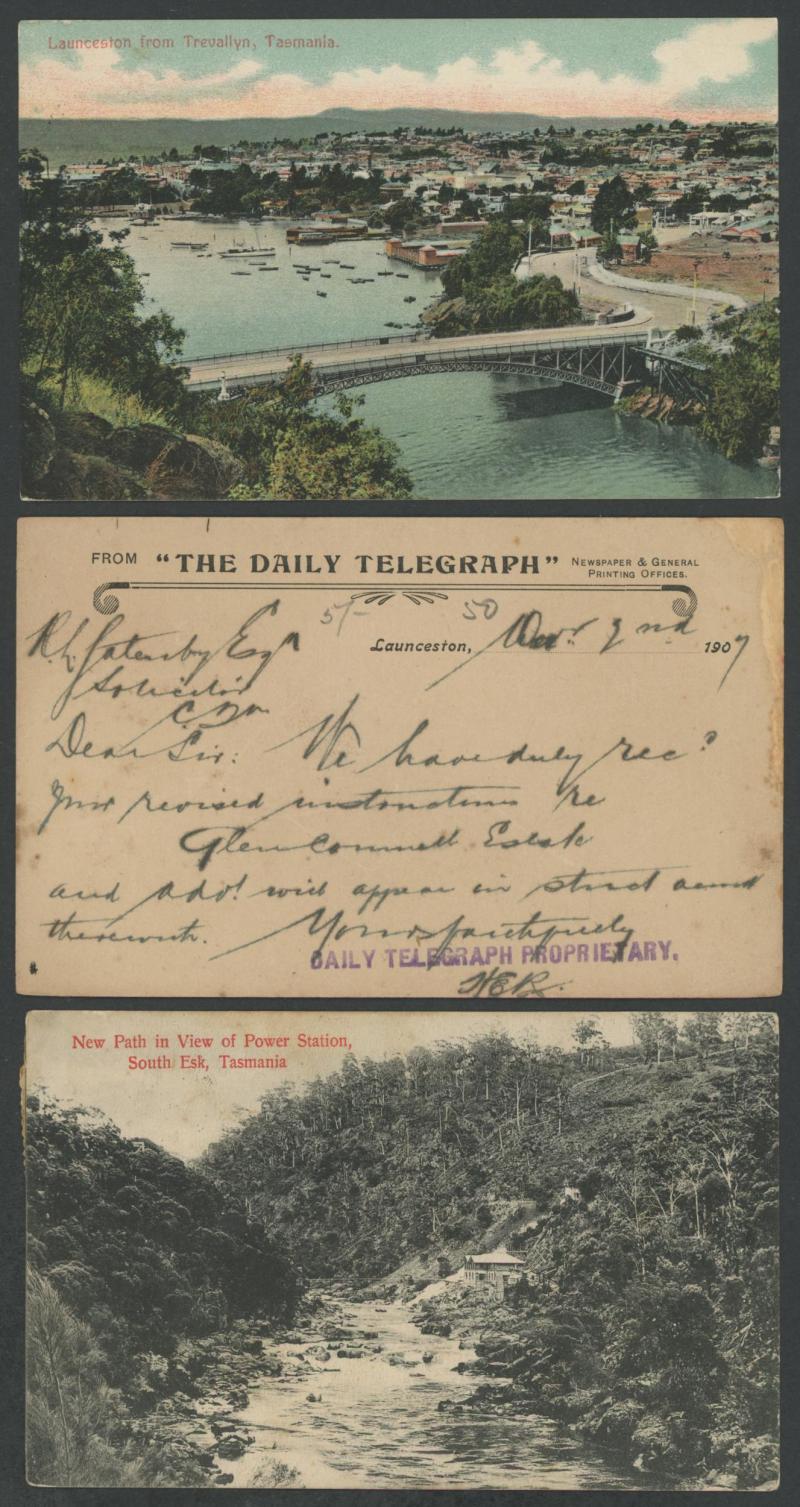 Launceston from Trevallyn, Tasmania.
FROM "THE DAILY TELEGRAPH" NEWSPAPER & GENERAL
PRINTING OFFICES.
5/- 50
Launceston, 2nd 1907
R.L. Gatenby Esqr
Solicitor
Dear Sir: We have duly rec?
your revised instructions re
Glen Connell Estate
and advt will appear in strict accord
therewith. Yours faithfully
DAILY TELEGRAPH PROPRIETARY.
New Path in View of Power Station,
South Esk, Tasmania